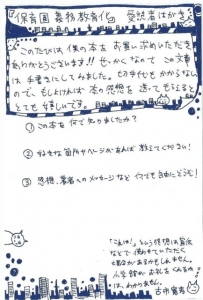 『保育園義務教育化』 愛読者はがき
このたびは僕の本をお買い求めいただき
ありがとうございます!! せっかくなので この文章
は手書きにしてみました。切手代もかからないし
ので、もしよければ本の感想を送ってもらえると
とても嬉しいです。
① この本を何で知りましたか?
② 好きな箇所やページがあれば教えてください!
③ 感想、著者へのメッセージなど何でも自由にどうぞ!
「これは!」という感想は宣伝
などで使わせていただく
小学館が
わかりません。
古市憲寿